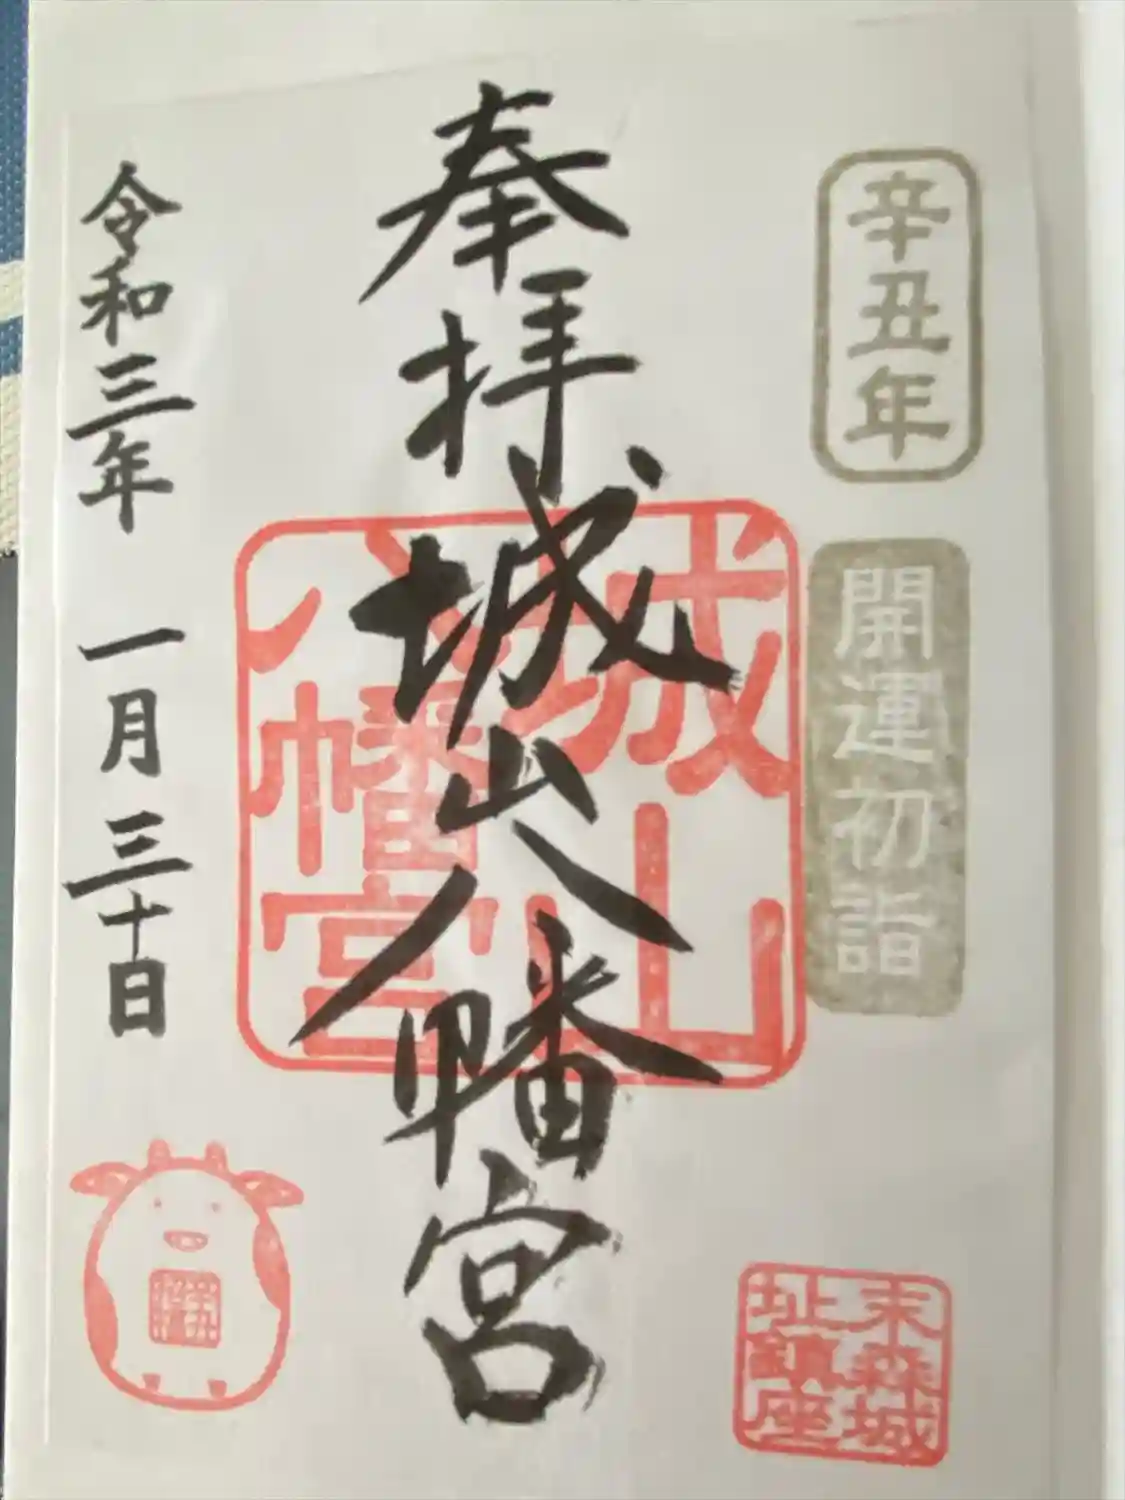 辛丑年
開運初詣
奉拝
城山八幡宮
城山
八幡宮
末森城
址鎮座
令和三年 一月三十日